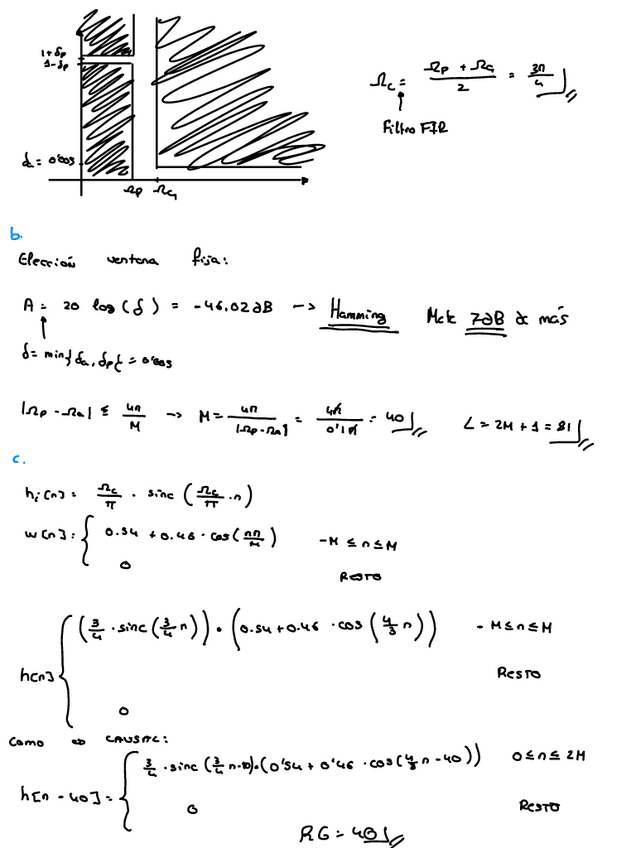 1+δp
1-δp
δa = 0'005
Ωp Ωa
Ωc = (Ωp + Ωa)/2 = 3π/4
Filtro FIR
b.
Elección ventana fija:
A = 20 log(δ) = -46.02dB -> Hamming Mete 7dB de más
δ = min{δa, δp} = 0'005
|Ωp - Ωa| ≤ 4π/M -> M = 4π/|Ωp - Ωa| = 4π/0'1π = 40 L = 2M + 1 = 81
c.
hi[n] = Ωc/π · sinc (Ωc/π · n)
w[n] = { 0.54 + 0.46 · cos(πn/M) -M ≤ n ≤ M
0 RESTO
h[n] { (3/4 · sinc (3/4 n)) · (0.54 + 0.46 · cos (4/3 n)) - M ≤ n ≤ M
RESTO
0
Como es CAUSAL:
h[n - 40] = { 3/4 · sinc (3/4 n-40) · (0'54 + 0'46 · cos(4/3 n - 40)) 0 ≤ n ≤ 2M
0 RESTO
RG = 40